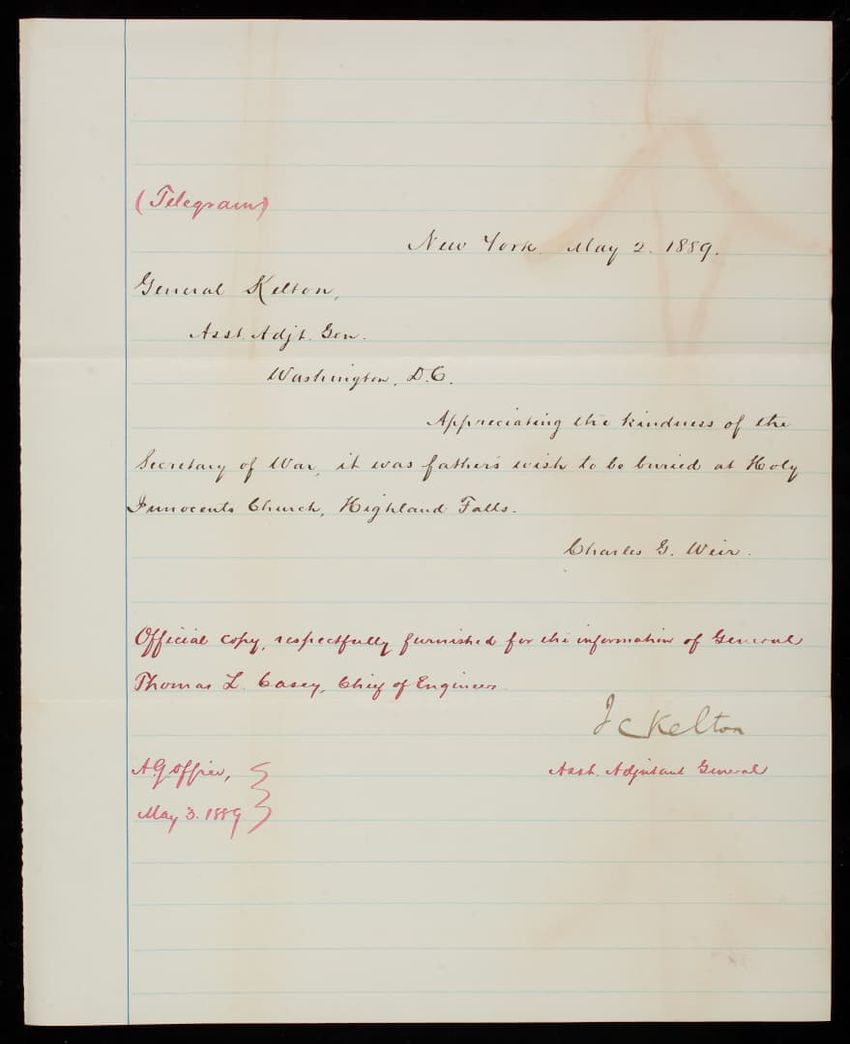 (Telegram)
New York. May 2. 1889.
General Kelton,
Asst. Adjt. Gen.
Washington, D.C.
Appreciating the kindness of the
Secretary of War, it was father's wish to be buried at Holy
Innocents Church, Highland Falls.
Charles G. Weir.
Official copy, respectfully furnished for the information of General
Thomas L. Casey, Chief of Engineers.
J C Kelton
A G Office,
Asst. Adjutant General
May 3. 1889